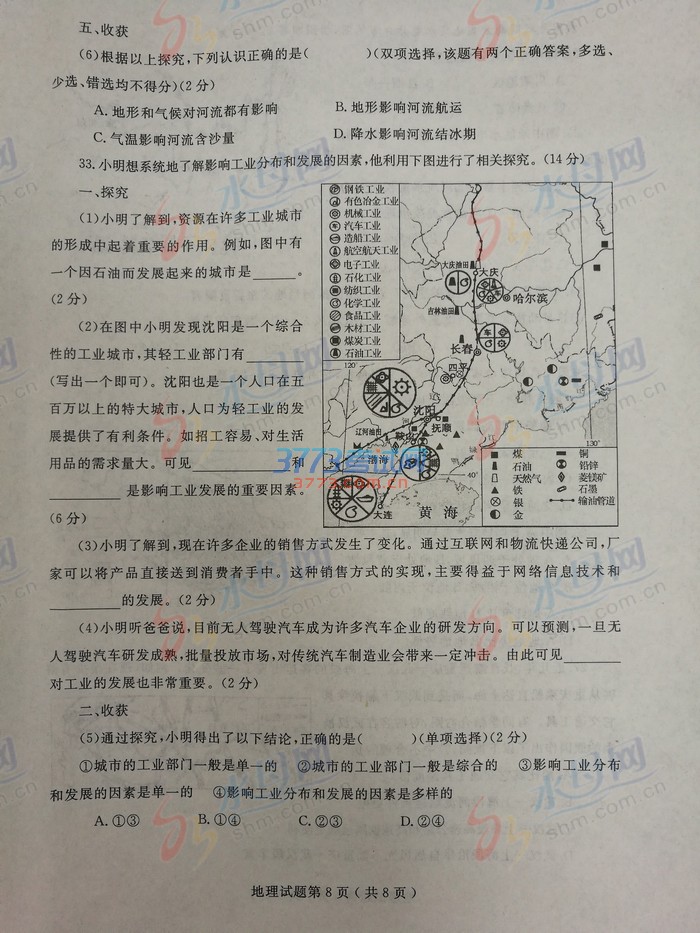 五、收获
(6)根据以上探究,下列认识正确的是(　　)(双项选择,该题有两个正确答案,多选、
少选、错选均不得分)(2分)
A.地形和气候对河流都有影响　B.地形影响河流航运
C.气温影响河流含沙量　D.降水影响河流结冰期
33.小明想系统地了解影响工业分布和发展的因素,他利用下图进行了相关探究。(14分)
一、探究
(1)小明了解到,资源在许多工业城市
的形成中起着重要的作用。例如,图中有
一个因石油而发展起来的城市是______。
(2分)
(2)在图中小明发现沈阳是一个综合
性的工业城市,其轻工业部门有________
(写出一个即可)。沈阳也是一个人口在五
百万以上的特大城市,人口为轻工业的发
展提供了有利条件。如招工容易、对生活
用品的需求量大。可见____________和
__________是影响工业发展的重要因素。
(6分)
钢铁工业
有色冶金工业
机械工业
汽车工业
造船工业
航空航天工业
电子工业
石化工业
纺织工业
化学工业
食品工业
木材工业
煤炭工业
石油工业
120°
大庆油田
大庆
哈尔滨
吉林油田
车
长春
四平
沈阳
抚顺
辽河油田
鞍山
渤海
40°
大连
黄海
130°
煤
石油
天然气
铁
银
金
铜
铅锌
菱镁矿
石墨
输油管道
(3)小明了解到,现在许多企业的销售方式发生了变化。通过互联网和物流快递公司,厂
家可以将产品直接送到消费者手中。这种销售方式的实现,主要得益于网络信息技术和
__________的发展。(2分)
(4)小明听爸爸说,目前无人驾驶汽车成为许多汽车企业的研发方向。可以预测,一旦无
人驾驶汽车研发成熟,批量投放市场,对传统汽车制造业会带来一定冲击。由此可见________
对工业的发展也非常重要。(2分)
二、收获
(5)通过探究,小明得出了以下结论,正确的是(　　)(单项选择)(2分)
①城市的工业部门一般是单一的　②城市的工业部门一般是综合的　③影响工业分布
和发展的因素是单一的　④影响工业分布和发展的因素是多样的
A.①③　B.①④　C.②③　D.②④
地理试题第8页(共8页)
3773考试网